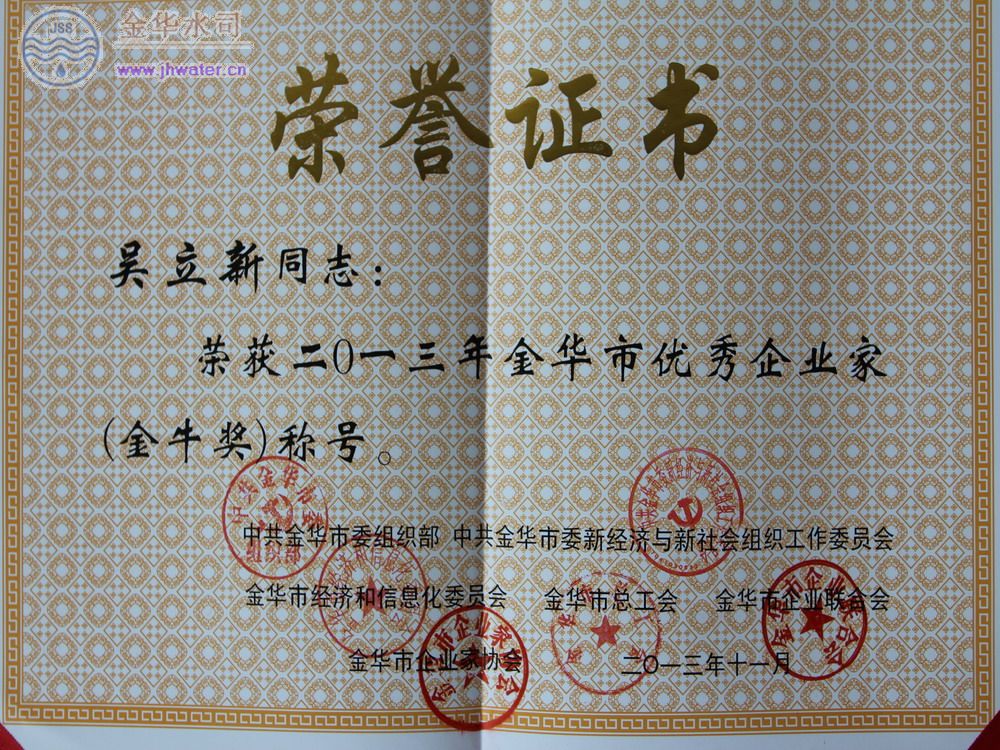 JSS
金华水司
www.jhwater.cn
荣誉证书
吴立新同志：
荣获二〇一三年金华市优秀企业家
(金牛奖)称号。
中共金华市委组织部 中共金华市委新经济与新社会组织工作委员会
金华市经济和信息化委员会 金华市总工会 金华市企业联合会
金华市企业家协会 二〇一三年十一月
中共金华市委
组织部
金华市企业联合会
金华市企业家协会